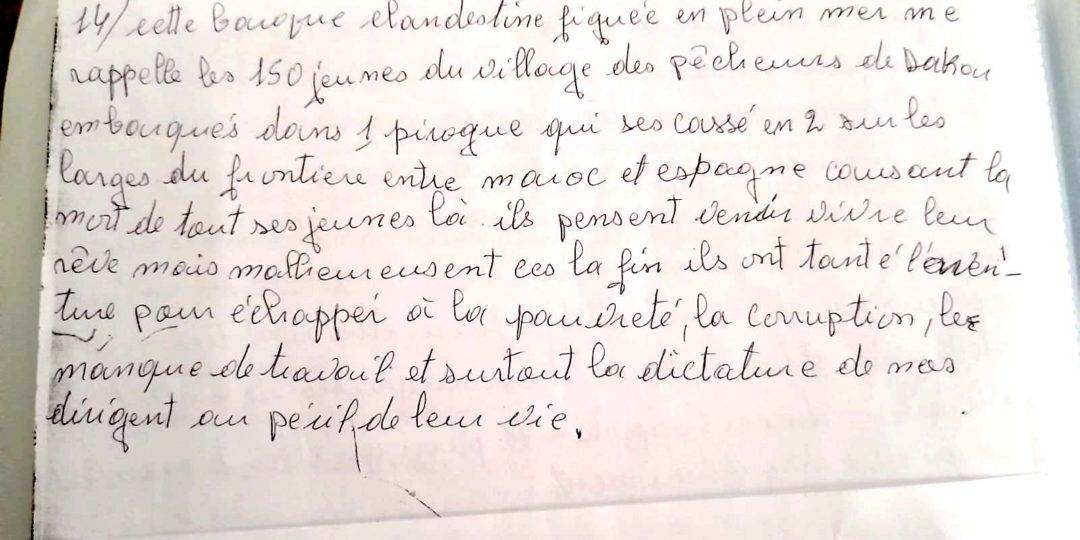 14/ cette barque clandestine figuée en plein mer me
rappelle les 150 jeunes du village des pêcheurs de Dakou
embarqués dans 1 pirogue qui ses cassé en 2 sur les
larges du frontiere entre maroc et espagne causant la
mort de tout ses jeunes là. ils pensent venir vivre leur
rêve mais malheureusent ces la fin ils ont tanté l'
ture pour échapper à la pauvreté, la corruption, les
manque de travail et surtout la dictature de nos
dirigent au péril de leur vie.